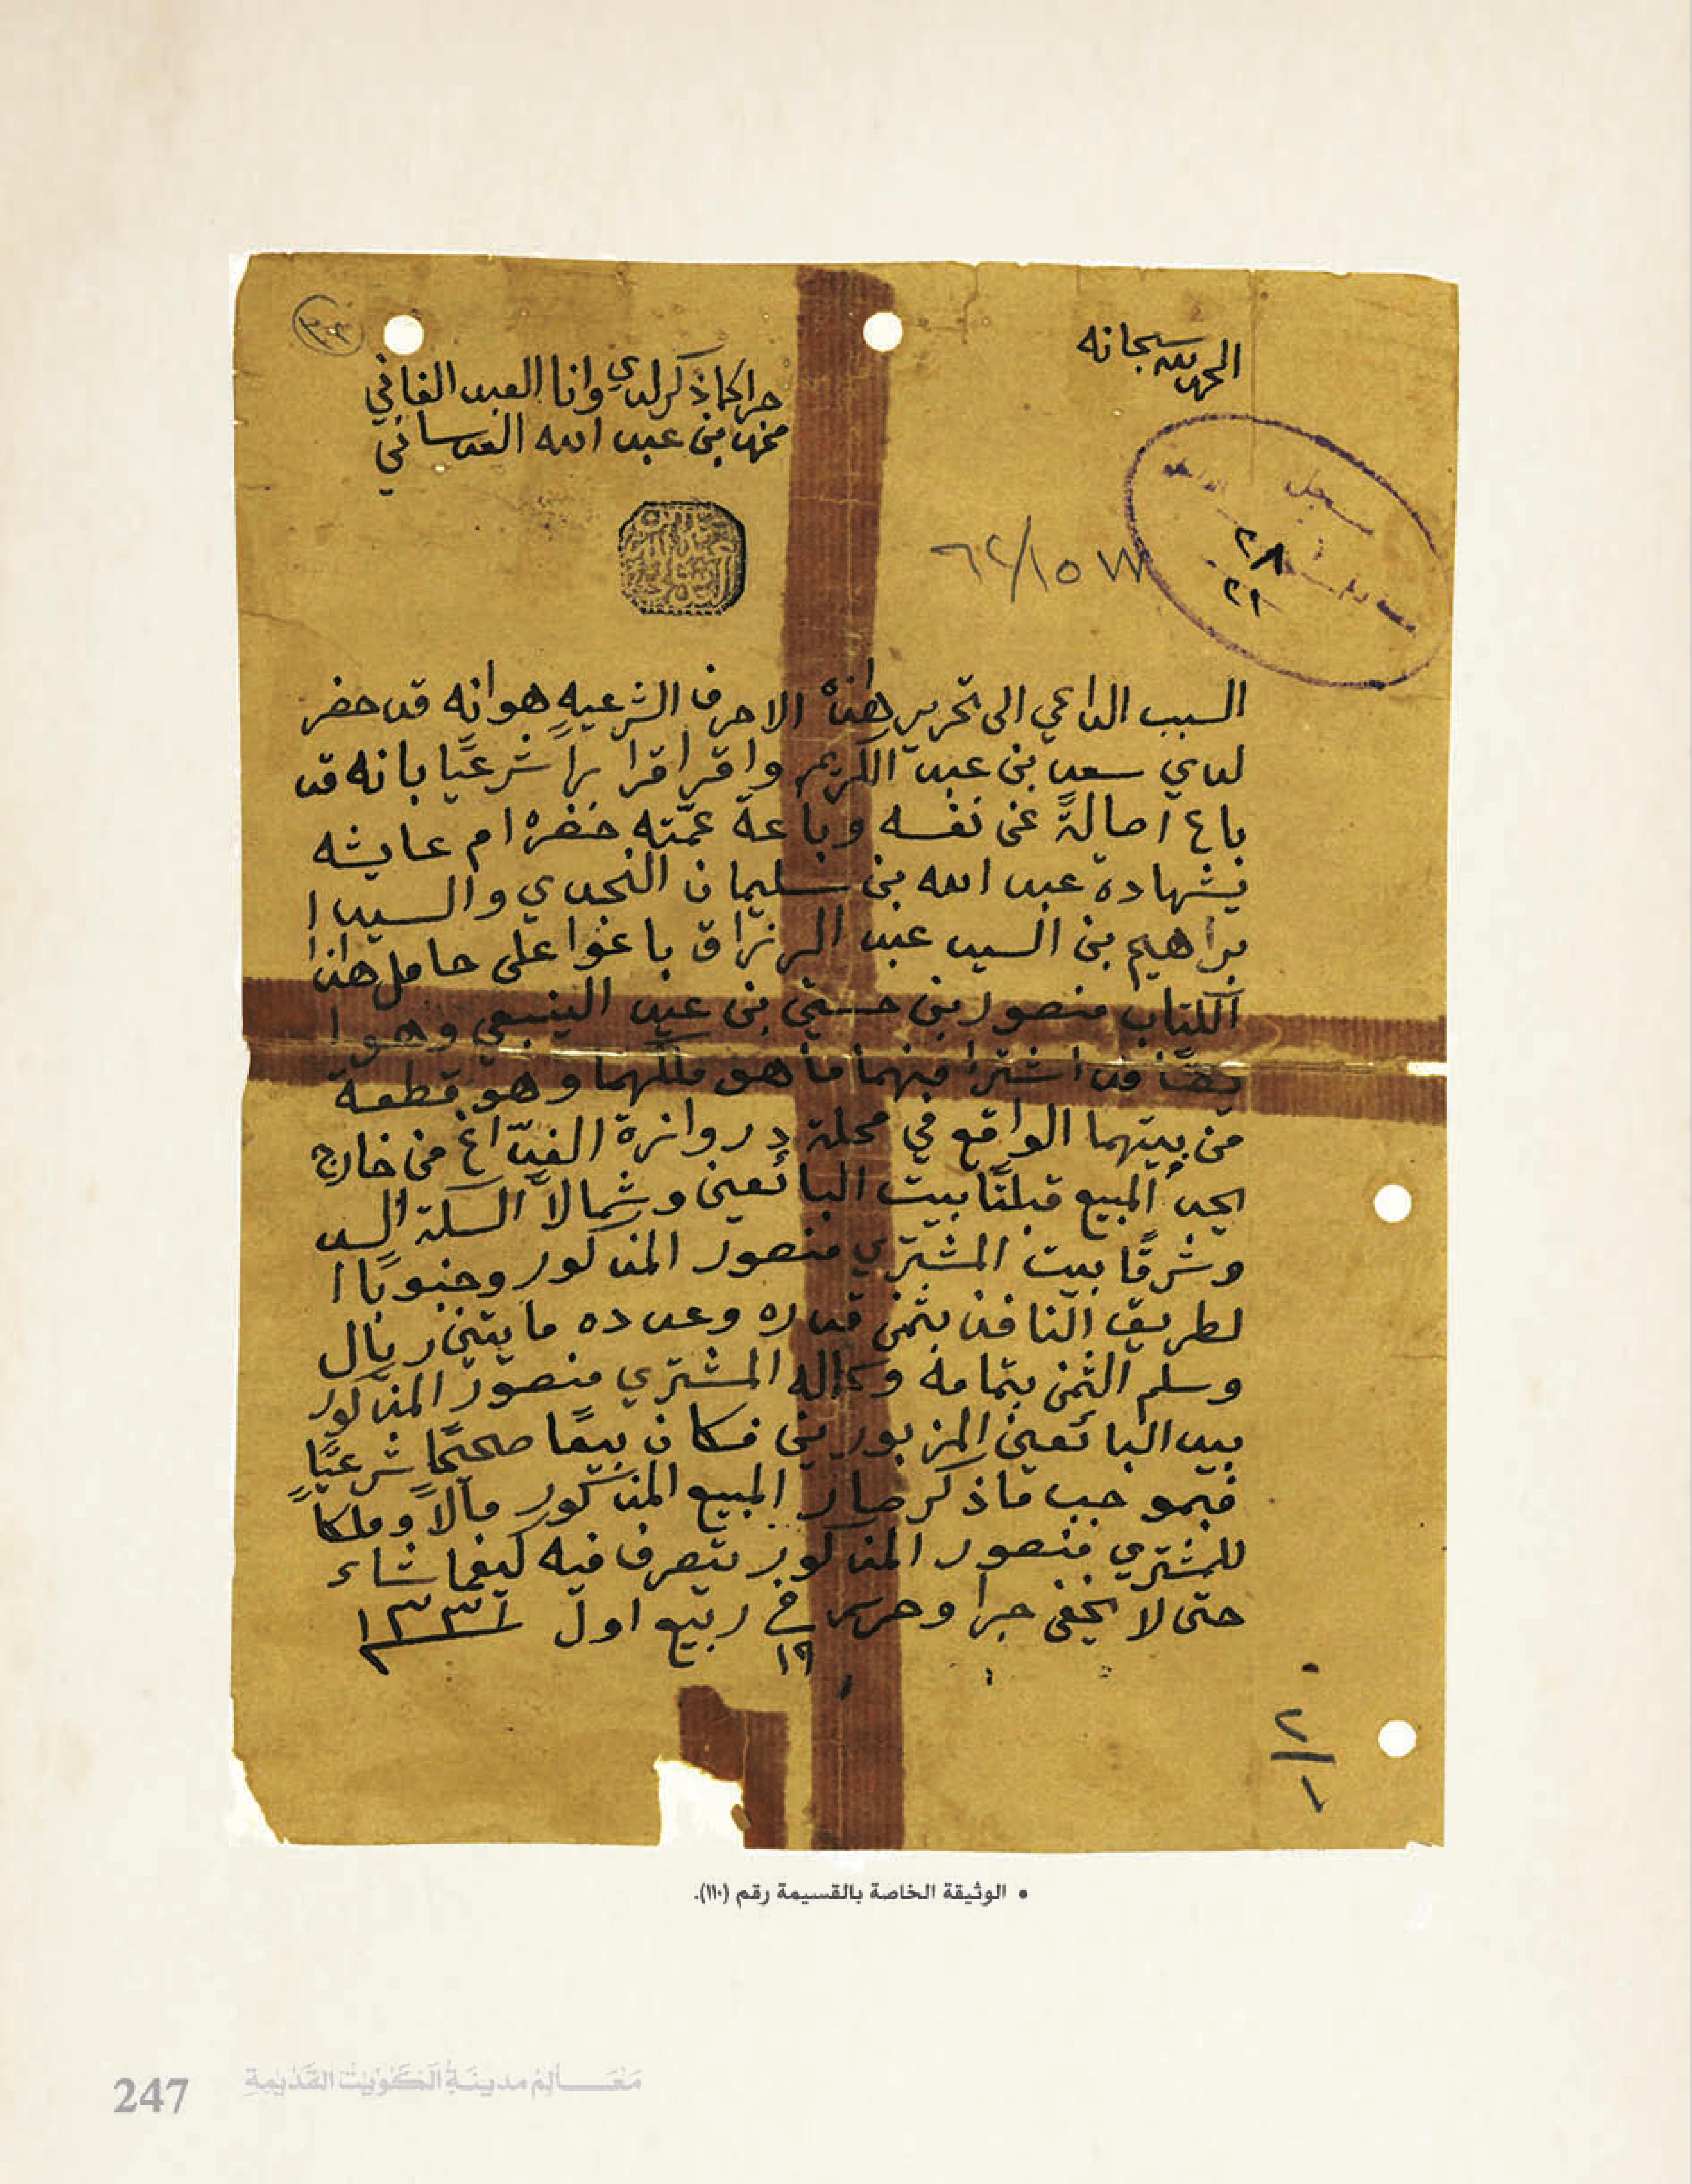 الحمد لله سبحانه
جرا كما ذكر لدي وانا العبد الفاني
محمد بن عبد الله العدساني
سجل
٢٨
٢١
السبب الداعي الى تحرير هذه الاحرف الشرعيه هو انه قد حضر
لدي سعد بن عبد الكريم واقر اقرارا شرعيا بانه قد
باع اصالة عن نفسه وباعة عمته خضره ام عايشه
بشهادة عبد الله بن سليمان النجدي والسيد ا
براهيم بن السيد عبد الرزاق باعوا على حامل هذا
الكتاب منصور بن حسين بن عبد الينبعي وهو ا
يضا قد اشترا منهما ما هو ملكهما وهو قطعة
من بيتهما الواقع في محلة دروازة الفداغ من خارج
يحد المبيع قبلتا بيت البائعين وشمالا السكة السد
وشرقا بيت المشتري منصور المذكور وجنوبا ا
لطريق النافذ بثمن قدره وعدده مايتين ريال
وسلم الثمن بتمامه وكماله المشتري منصور المذكور
بيد البائعين المزبورين فكان بيعا صحيحا شرعيا
فبموجب ما ذكر صار المبيع المذكور مالا وملكا
للمشتري منصور المذكور يتصرف فيه كيفما شاء
حتى لا يخفى جرا وحرر في ١٩ ربيع اول ١٣٣٦
٢/١
• الوثيقة الخاصة بالقسيمة رقم (١١٠).
247 مَعَالِمُ مدينَةِ الكُوَيْت القَدْيمَةِ